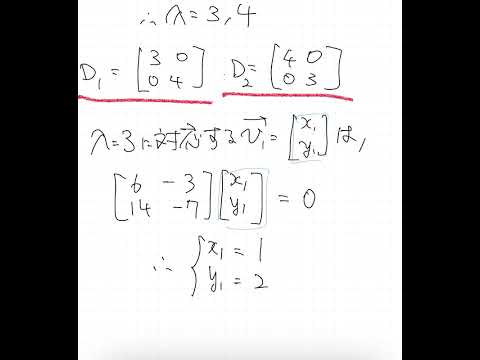 ∴ λ = 3, 4
D₁ = [3 0; 0 4] D₂ = [4 0; 0 3]
λ=3に対応するv⃗₁ = [x₁; y₁]は,
[6 -3; 14 -7][x₁; y₁] = 0
∴ { x₁ = 1
y₁ = 2